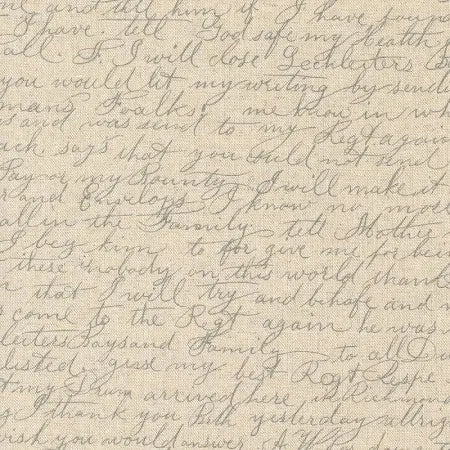 and tell him if I have found
I have. tell God safe my health
all. F. I will close Lechleiters
you would let my writing by sende
mans Foalks. me know in wh
and was send to my Regt again
ack says that you could not send
Pay or my Bounty. I will make it
and Envelops I know no more
all in the Family tell Mother
I beg him to for give me for bein
there is nobody on this world thank
that I will try and behafe and
come to the Regt again he was
leiters Says and Family to all
listed. give my best Regt Respe
my Trunk arrived here in Richmond
I thank you Path yesterday allrig
wish you would answer